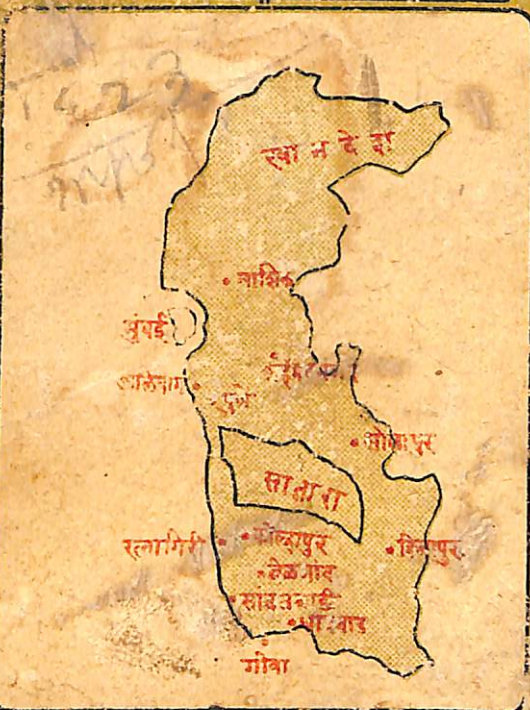 खानदेश
नाशिक
मुंबई
पुणे
सोलापूर
सातारा
रत्नागिरी
कोल्हापूर
विजापूर
बेळगांव
सावंतवाडी
धारवाड
गोवा